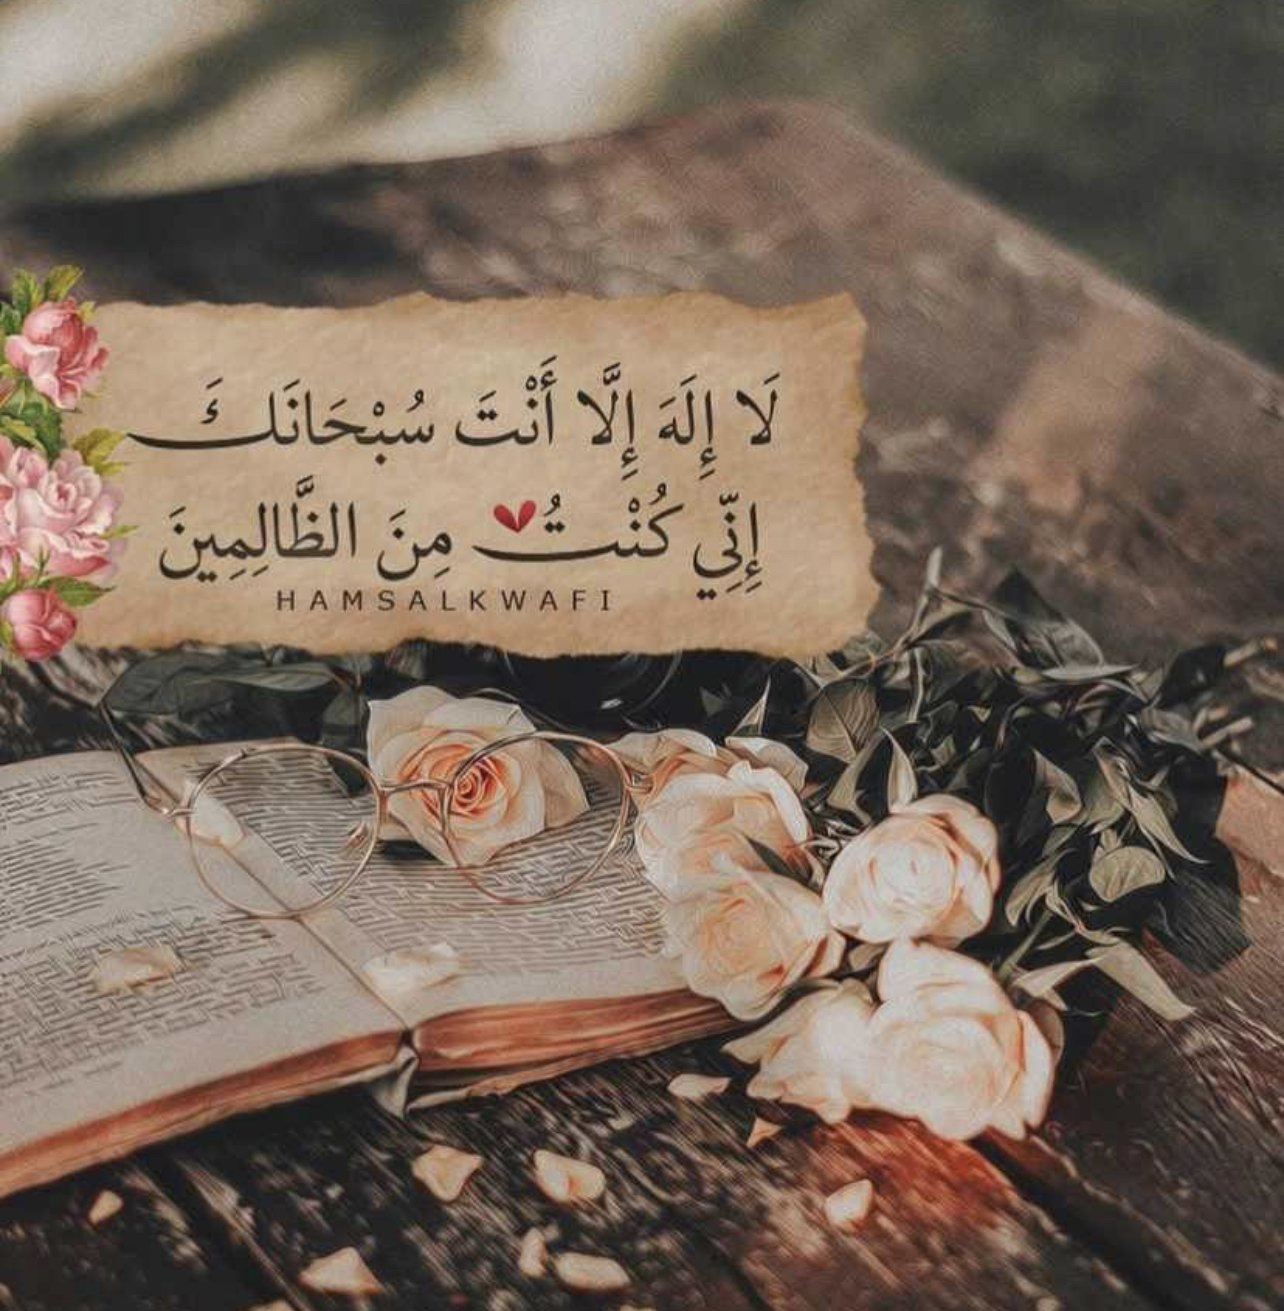 لَا إِلَهَ إِلَّا أَنْتَ سُبْحَانَكَ
إِنِّي كُنْتُ مِنَ الظَّالِمِينَ
HAMSALKWAFI